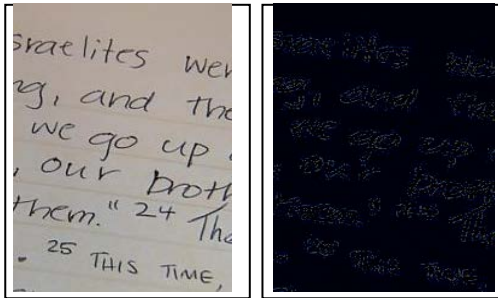 sraelites wer
ng, and the
we go up
, our broth
them." 24 The
. 25 THIS TIME,